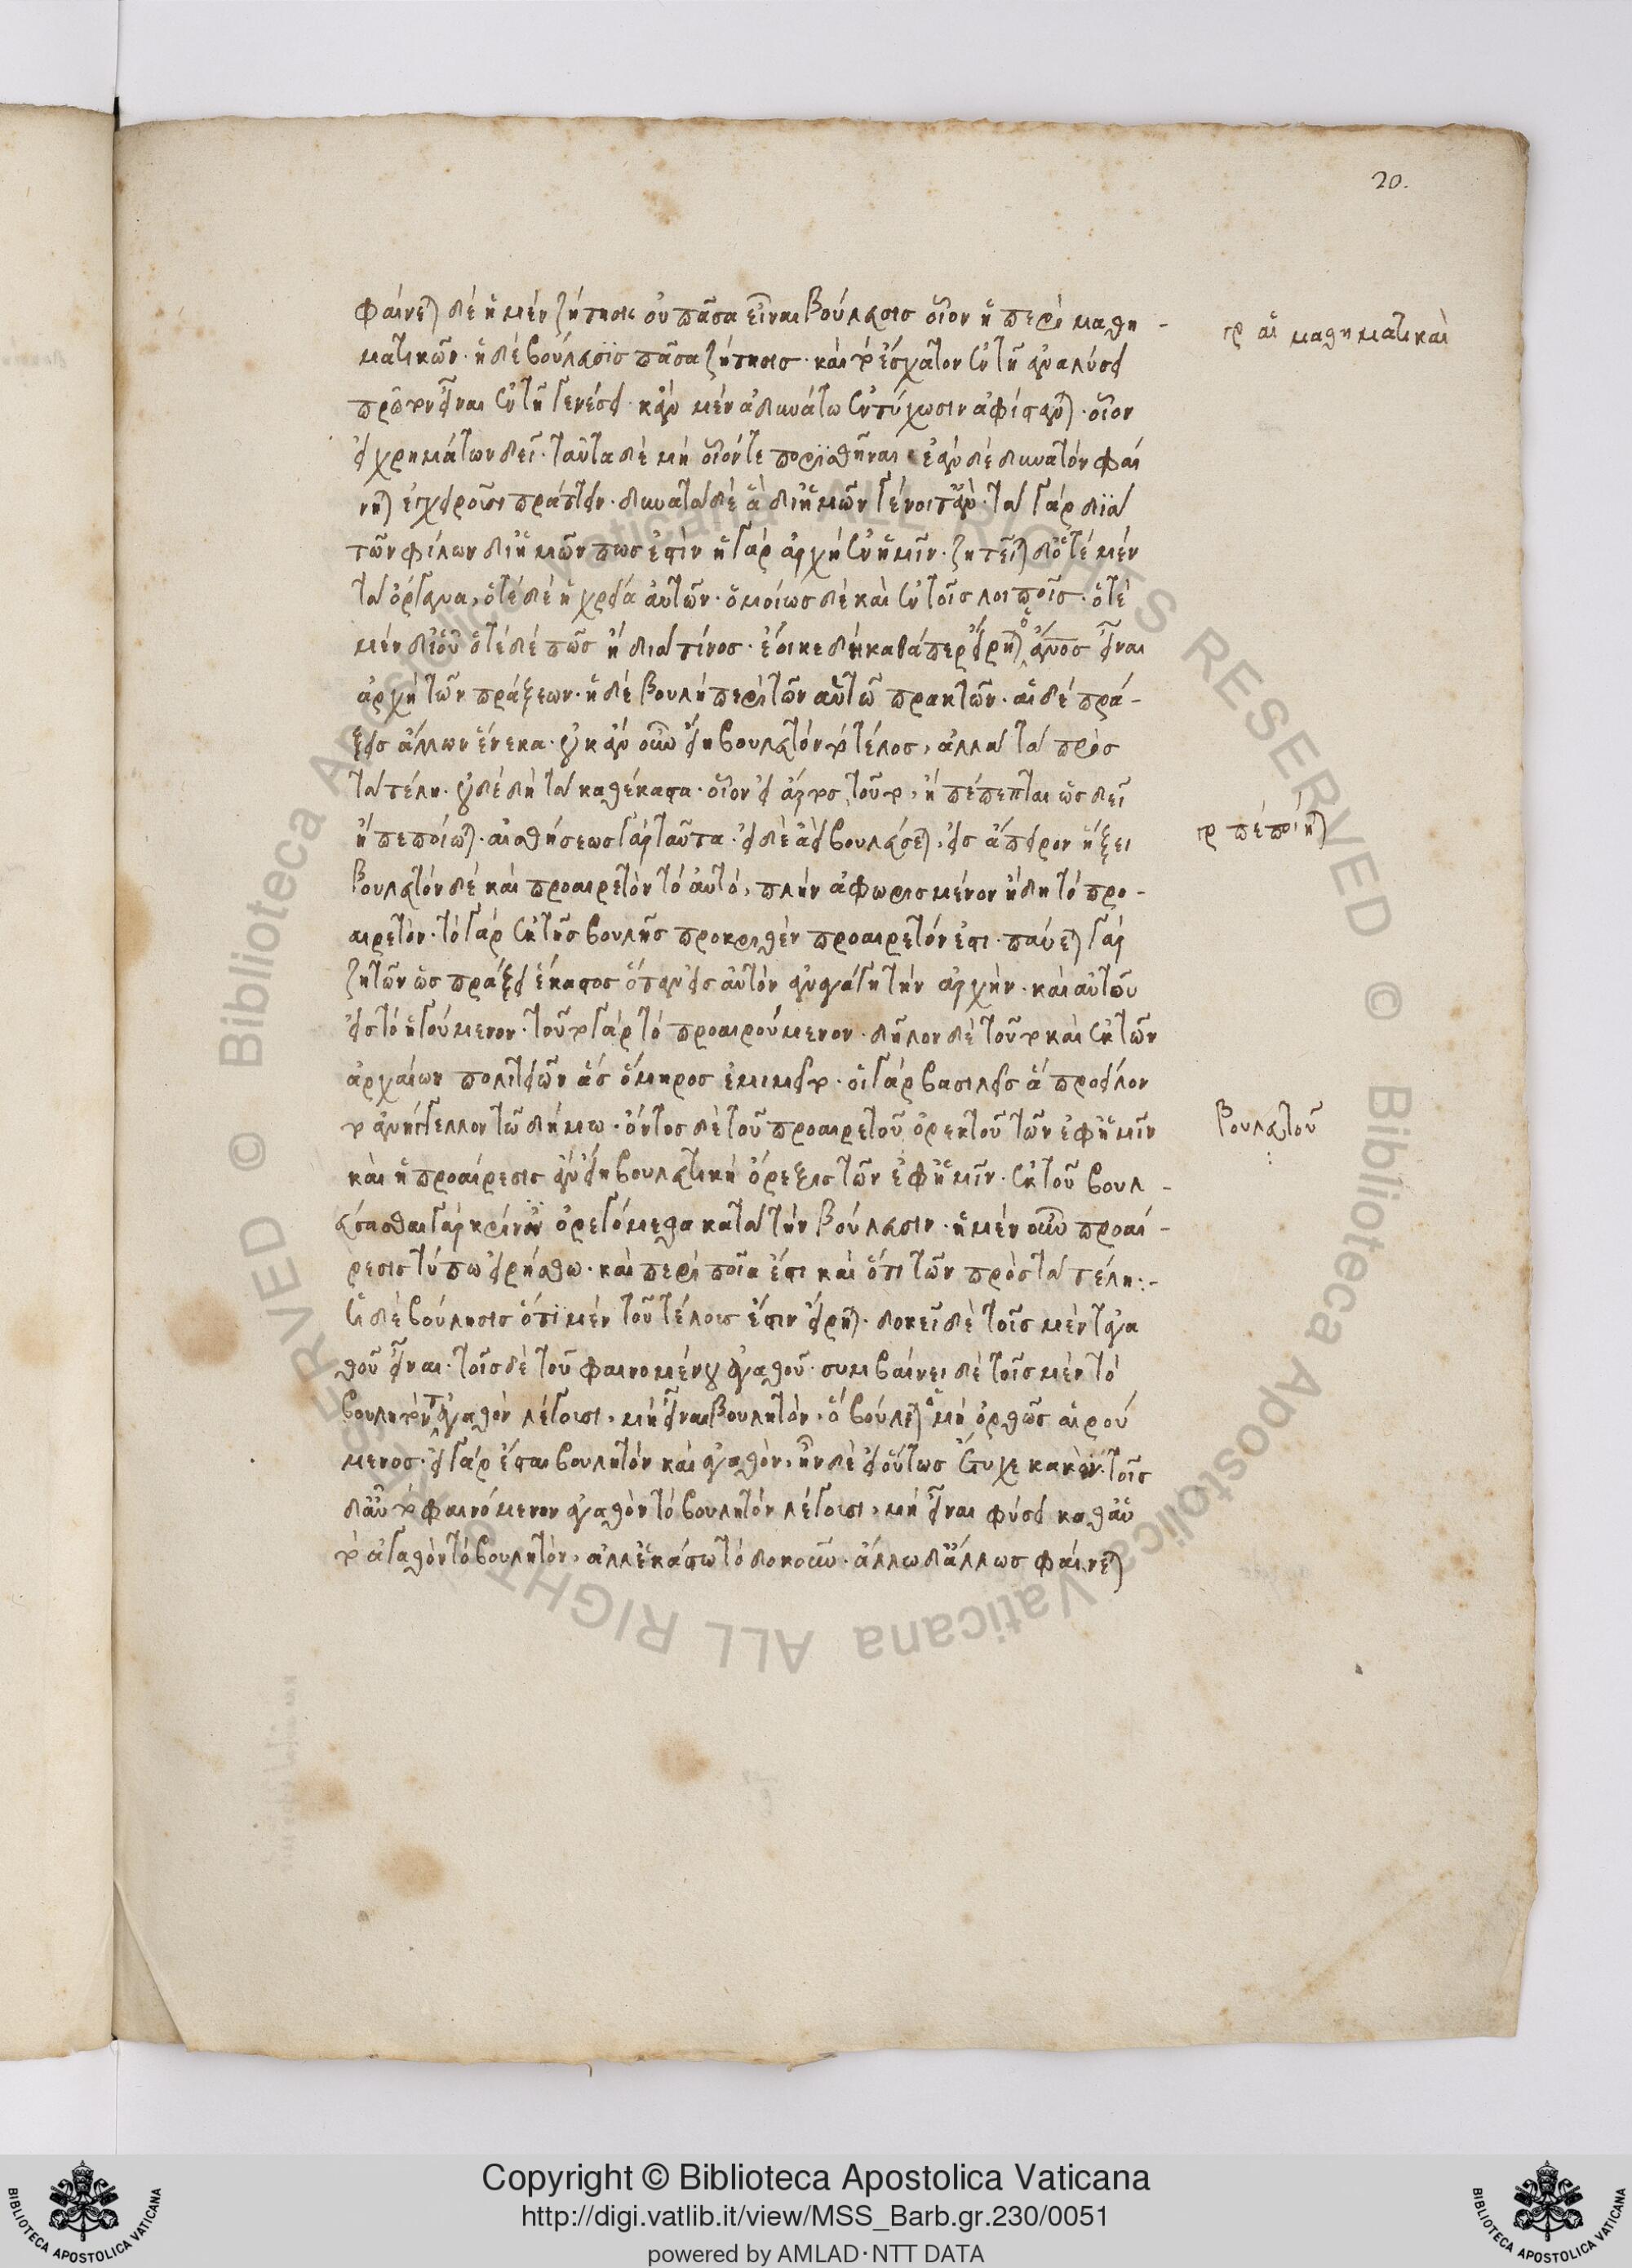 20.
φαίνεται δὲ ἡ μὲν ζήτησις οὐ πᾶσα εἶναι βούλευσις οἷον ἡ περὶ μαθη-
ματικῶν· ἡ δὲ βούλευσϊς πᾶσα ζήτησις· καὶ τὸ ἔσχατον ἐν τῆ ἀναλύσει
πρῶτον εἶναι ἐν τῆ γενέσει· κἂν μὲν ἀδυνάτω ἐντύχωσιν ἀφίστανται· οἷον
εἰ χρημάτων δεῖ· ταῦτα δὲ μὴ οἷόντε πορϊσθῆναι· ἐὰν δὲ δυνατὸν φαί
νηται ἐγχειροῦσι πράττειν· δυνατὰ δὲ ἃ δι' ἡμῶν γένοιτ' ἄν· τὰ γὰρ δϊὰ
τῶν φίλων δι' ἡμῶν πως ἐστὶν ἡ γὰρ ἀρχὴ ἐν ἡμῖν· ζητεῖται δ' ὁτὲ μὲν
τὰ ὄργανα, ὁτὲ δὲ ἡ χρεία αὐτῶν· ὁμοίως δὲ καὶ ἐν τοῖς λοιποῖς· ὁτὲ
μὲν δι' οὗ ὁτὲ δὲ πῶς ἢ διὰ τίνος· ἔοικε δὴ καθάπερ εἴρηται ὁ ἄνος εἶναι
ἀρχὴ τῶν πράξεων· ἡ δὲ βουλὴ περὶ τῶν αὑτῶ πρακτῶν· αἱ δὲ πρά-
ξεις ἄλλων ἕνεκα· οὐκ ἂν οὖν εἴη βουλευτὸν τὸ τέλος, ἀλλὰ τὰ πρὸς
τὰ τέλη· οὐδὲ δὴ τὰ καθέκαστα· οἷον εἰ ἄρτος τοῦτο, ἢ πέπεπται ὡς δεῖ
ἢ πεποίωται· αἰσθήσεως γὰρ ταῦτα· εἰ δὲ ἀεὶ βουλεύσεται, εἰς ἄπειρον ἥξει
βουλευτὸν δὲ καὶ προαιρετὸν τὸ αὐτό, πλὴν ἀφωρισμένον ἤδη τὸ προ-
αιρετόν· τὸ γὰρ ἐκ τῆς βουλῆς προκριθὲν προαιρετόν ἐστι· παύεται γὰρ
ζητῶν ὡς πράξει ἕκαστος ὅταν εἰς αὑτὸν ἀναγάγη τὴν ἀρχὴν· καὶ αὑτοῦ
εἰς τὸ ἡγούμενον· τοῦτο γὰρ τὸ προαιρούμενον· δῆλον δὲ τοῦτο καὶ ἐκ τῶν
ἀρχαίων πολιτειῶν ἃς ὅμηρος ἐμιμεῖτο· οἱ γὰρ βασιλεῖς ἃ προείλον
το ἀνήγγελλον τῶ δήμω· ὄντος δὲ τοῦ προαιρετοῦ ὀρεκτοῦ τῶν ἐφ' ἡμῖν
καὶ ἡ προαίρεσις ἂν εἴη βουλευτικὴ ὄρεξις τῶν ἐφ' ἡμῖν· ἐκ τοῦ βουλ-
εύσασθαι γὰρ κρίναντες ὀρεγόμεθα κατὰ τὴν βούλευσιν· ἡ μὲν οὖν προαί-
ρεσις τύπω εἰρήσθω· καὶ περὶ ποῖα ἐστι καὶ ὅτι τῶν πρὸς τὰ τέλη:-
Ἡ δὲ βούλησις ὅτι μὲν τοῦ τέλους ἐστιν εἴρηται· δοκεῖ δὲ τοῖς μὲν τἀγα
θοῦ εἶναι· τοῖς δὲ τοῦ φαινομένου ἀγαθοῦ· συμβαίνει δὲ τοῖς μὲν τὸ
βουλητὸν τἀγαθὸν λέγουσι, μὴ εἶναι βουλητὸν, ὃ βούλεται ὁ μὴ ὀρθῶς αἱρού
μενος· εἰ γὰρ ἔσται βουλητὸν καὶ ἀγαθὸν, ἦν δὲ εἰ οὕτως ἔτυχε κακὸν· τοῖς
δ' αὖ τὸ φαινόμενον ἀγαθὸν τὸ βουλητὸν λέγουσι, μὴ εἶναι φύσει καθ' αὑ
τὸ ἀγαθὸν τὸ βουλητὸν, ἀλλ' ἑκάστω τὸ δοκοῦν· ἄλλω δ' ἄλλως φαίνεται
γρ αἱ μαθηματικαὶ
γρ πεποίηται
βουλευτοῦ
Copyright © Biblioteca Apostolica Vaticana
http://digi.vatlib.it/view/MSS_Barb.gr.230/0051
powered by AMLAD·NTT DATA
BIBLIOTECA APOSTOLICA VATICANA
BIBLIOTECA APOSTOLICA VATICANA
© Biblioteca Apostolica Vaticana ALL RIGHTS RESERVED
© Biblioteca Apostolica Vaticana ALL RIGHTS RESERVED